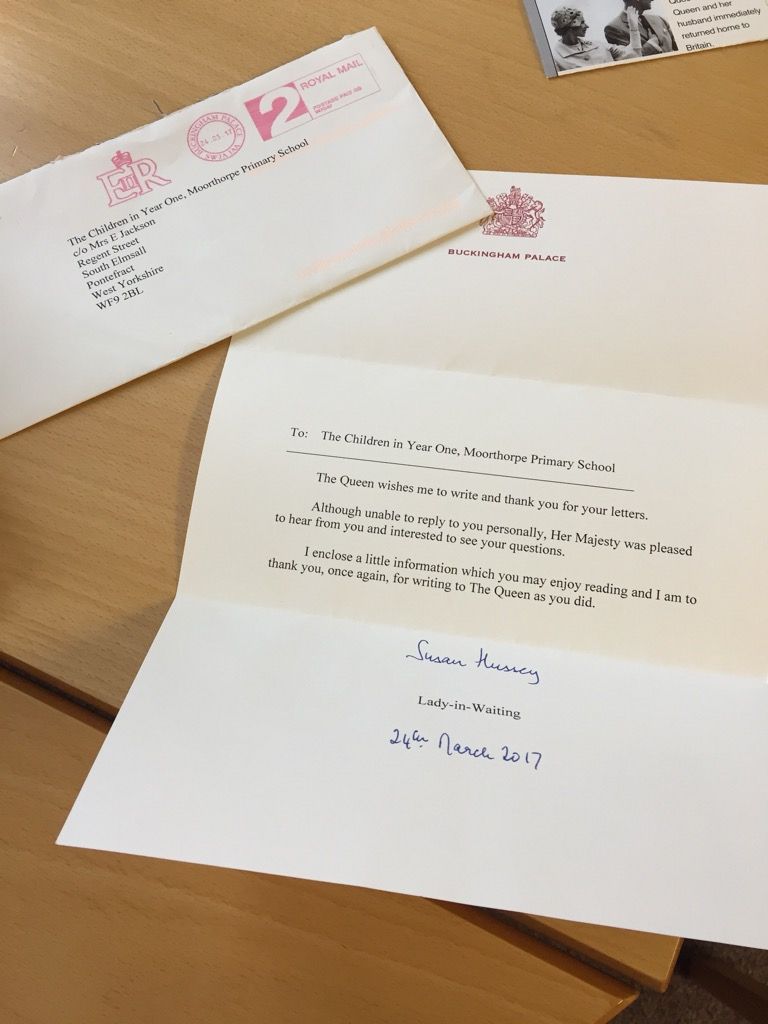 Queen and her
husband immediately
returned home to
Britain.
ROYAL MAIL
POSTAGE PAID GB
2
BUCKINGHAM PALACE
24.03.17
SW1A 1AA
EIIR
The Children in Year One, Moorthorpe Primary School
c/o Mrs E Jackson
Regent Street
South Elmsall
Pontefract
West Yorkshire
WF9 2BL
BUCKINGHAM PALACE
To: The Children in Year One, Moorthorpe Primary School
The Queen wishes me to write and thank you for your letters.
Although unable to reply to you personally, Her Majesty was pleased
to hear from you and interested to see your questions.
I enclose a little information which you may enjoy reading and I am to
thank you, once again, for writing to The Queen as you did.
Susan Hussey
Lady-in-Waiting
24th March 2017